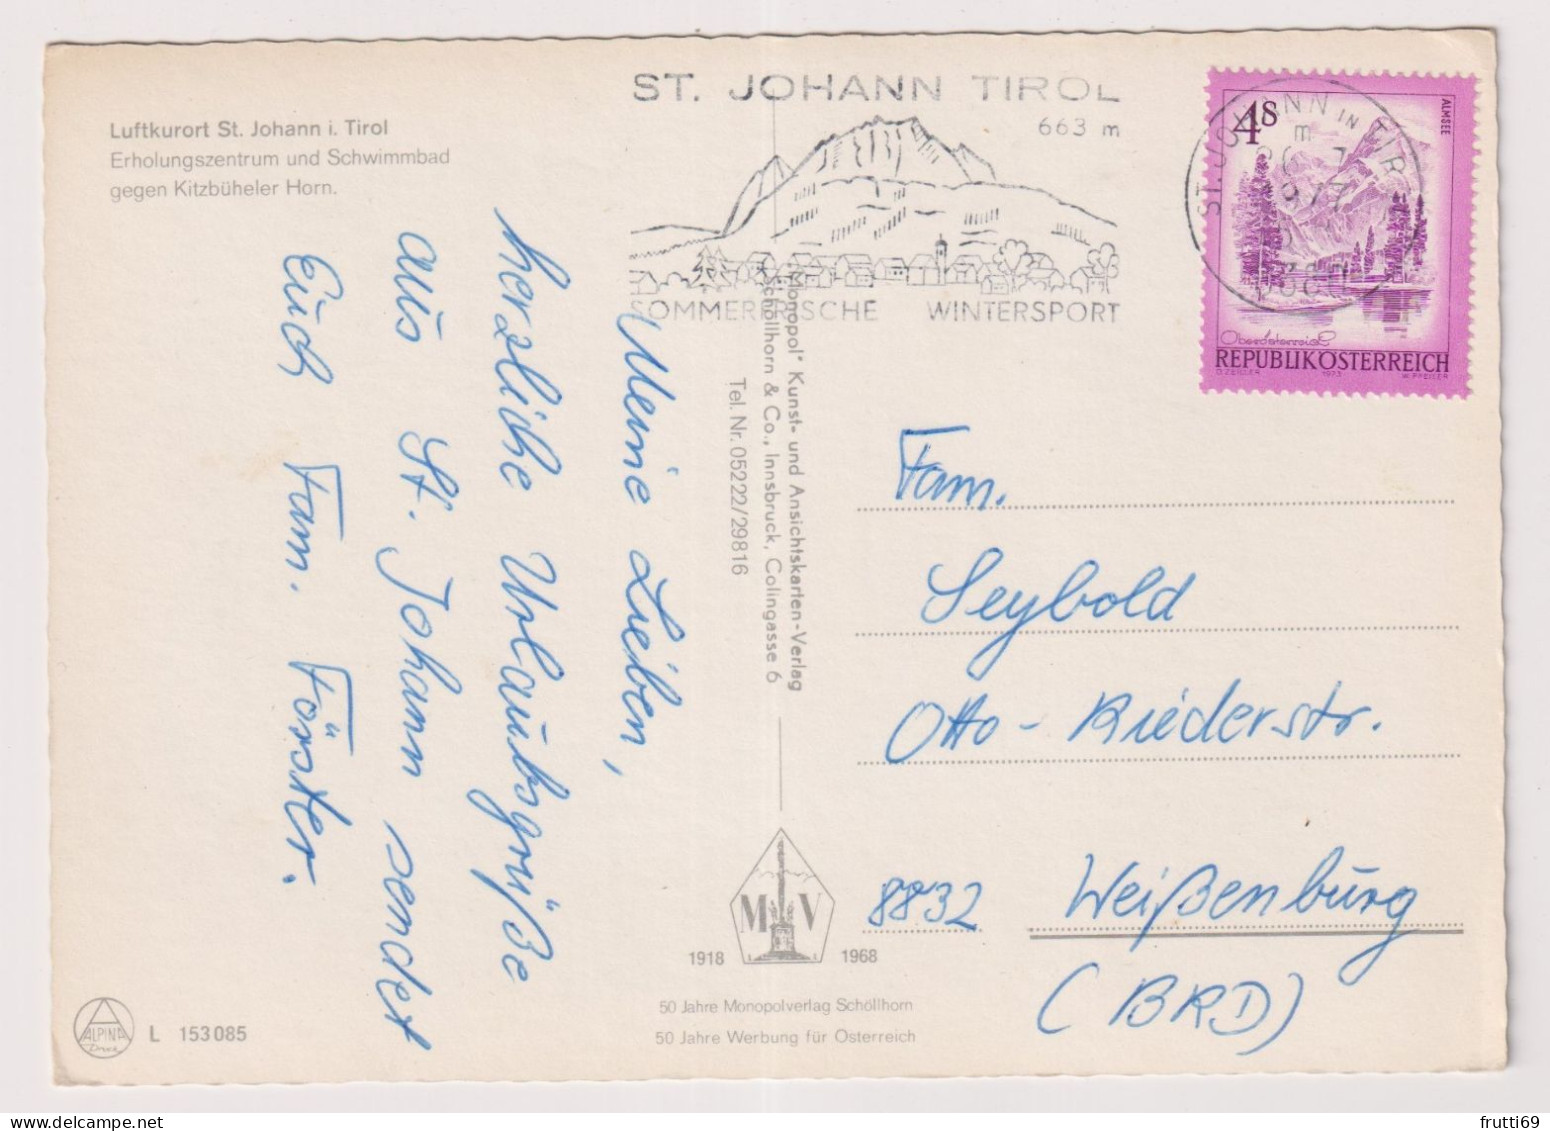 Luftkurort St. Johann i. Tirol
Erholungszentrum und Schwimmbad
gegen Kitzbüheler Horn.
ST. JOHANN TIROL
663 m
SOMMERFRISCHE WINTERSPORT
ST. JOHANN IN TIROL
1977
4S
ALMSEE
Oberösterreich
REPUBLIK ÖSTERREICH
O. ZEILLER 1973 W. PFEILER
Meine Lieben,
herzliche Urlaubsgrüße
aus St. Johann sendet
Euch Fam. Förster.
"Monopol" Kunst- und Ansichtskarten-Verlag
Schöllhorn & Co., Innsbruck, Colingasse 6
Tel. Nr. 05222/29816
Fam.
Seybold
Otto-Riederstr.
8832 Weißenburg
(BRD)
M V
1918 1968
50 Jahre Monopolverlag Schöllhorn
50 Jahre Werbung für Österreich
ALPINA
Druck
L 153085
frutti69